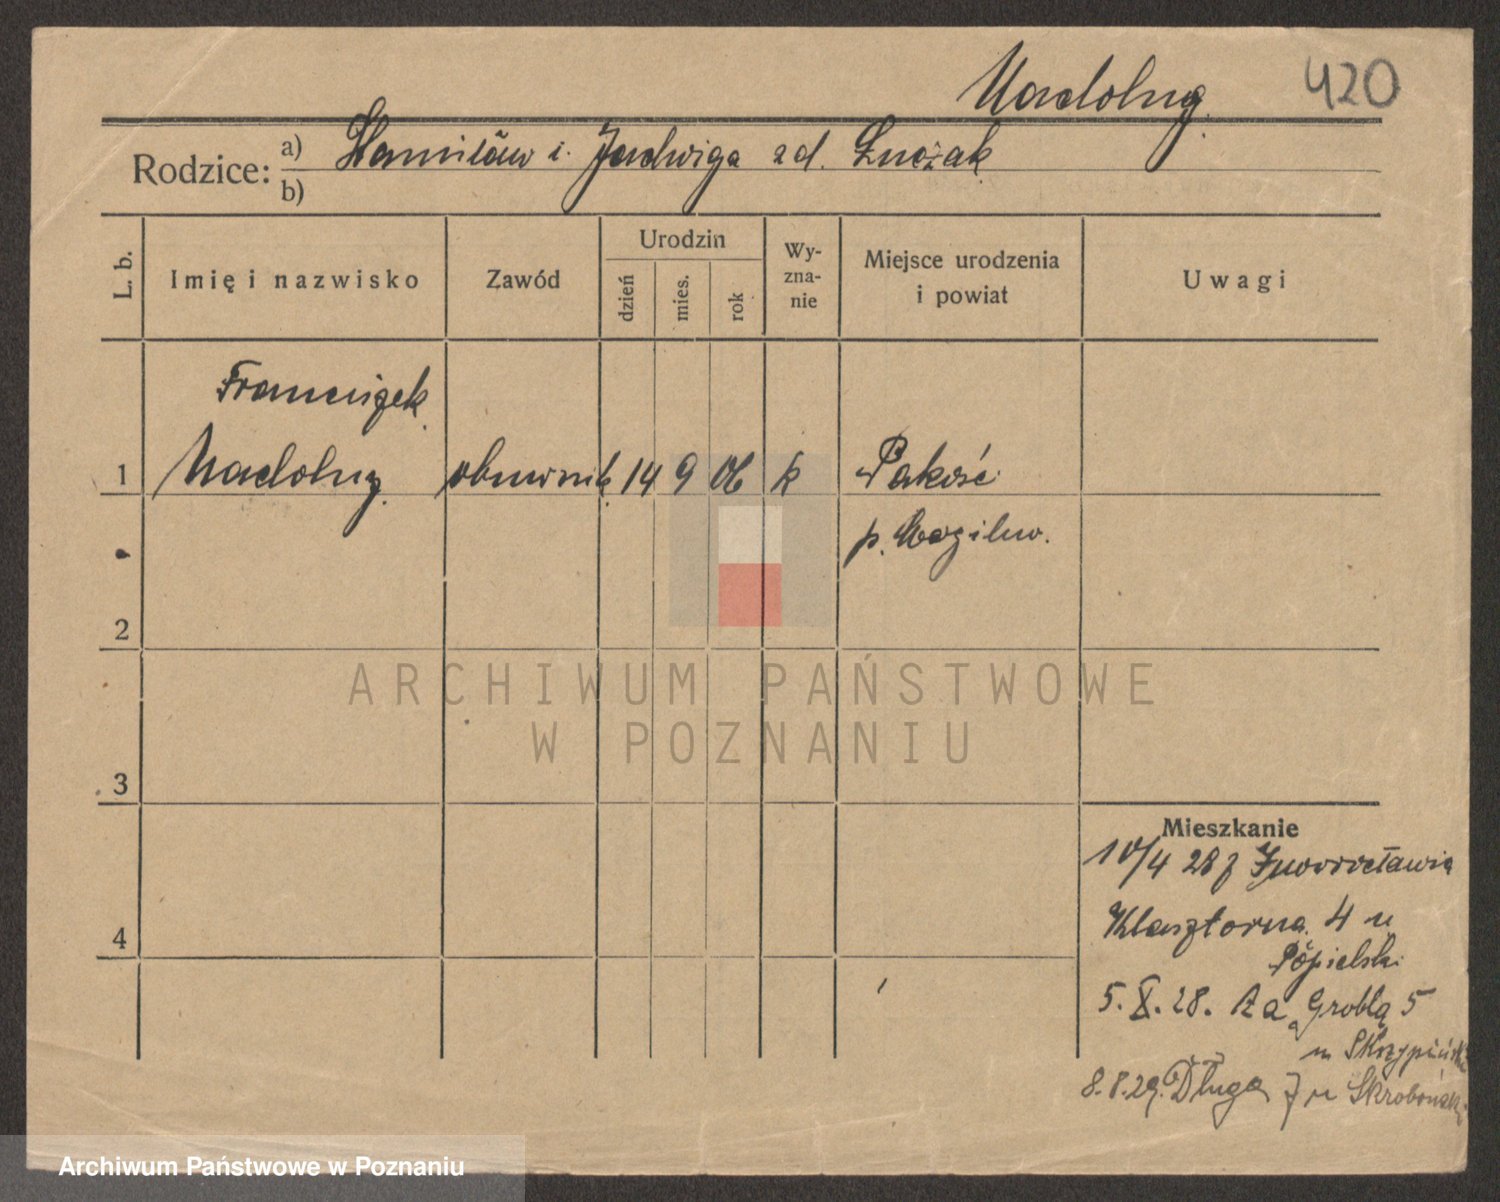 Nadolny 420
Rodzice: a) Stanisław i Jadwiga zd. Łuczak
b)
L. b. Imię i nazwisko Zawód Urodzin dzień mies. rok Wy-zna-nie Miejsce urodzenia i powiat Uwagi
Franciszek
1 Nadolny obuwnik 14 9 06 k Pakość
p. Mogilno.
2
ARCHIWUM PAŃSTWOWE
W POZNANIU
3
Mieszkanie
10/4 28 z Inowrocławia
Klasztorna 4 u
4
Popielski
5. X. 28. Za Groblą 5
u Skrzypiński
8.8.29. Długa 7 u
Archiwum Państwowe w Poznaniu